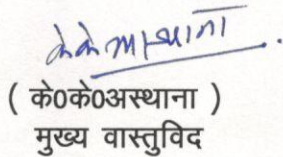 के०के०अस्थाना
( के०के०अस्थाना )
मुख्य वास्तुविद